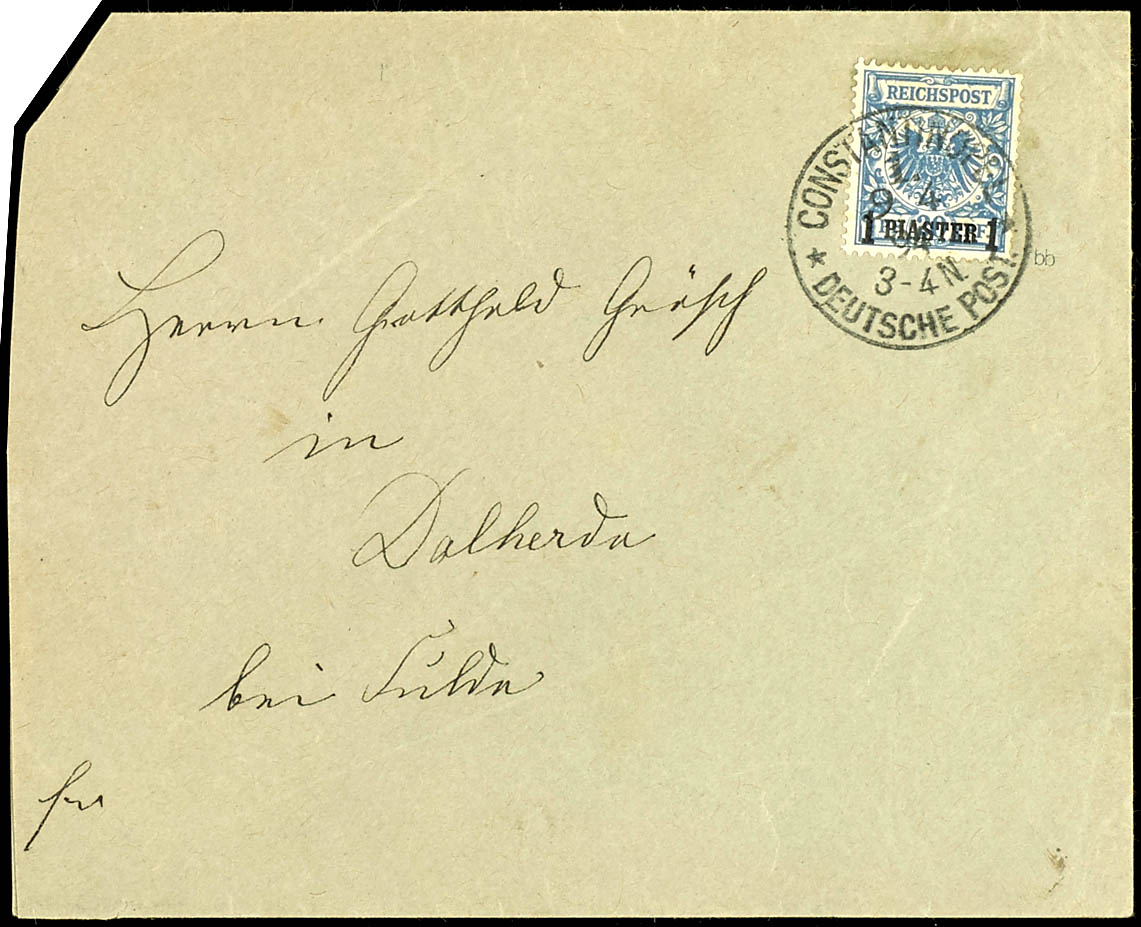 REICHSPOST
1 PIASTER 1
CONSTANTINOPEL 1
9 4
3-4N
* DEUTSCHE POST.
bb
Herrn Gotthold
in
Dalherda
bei Fulda
fr